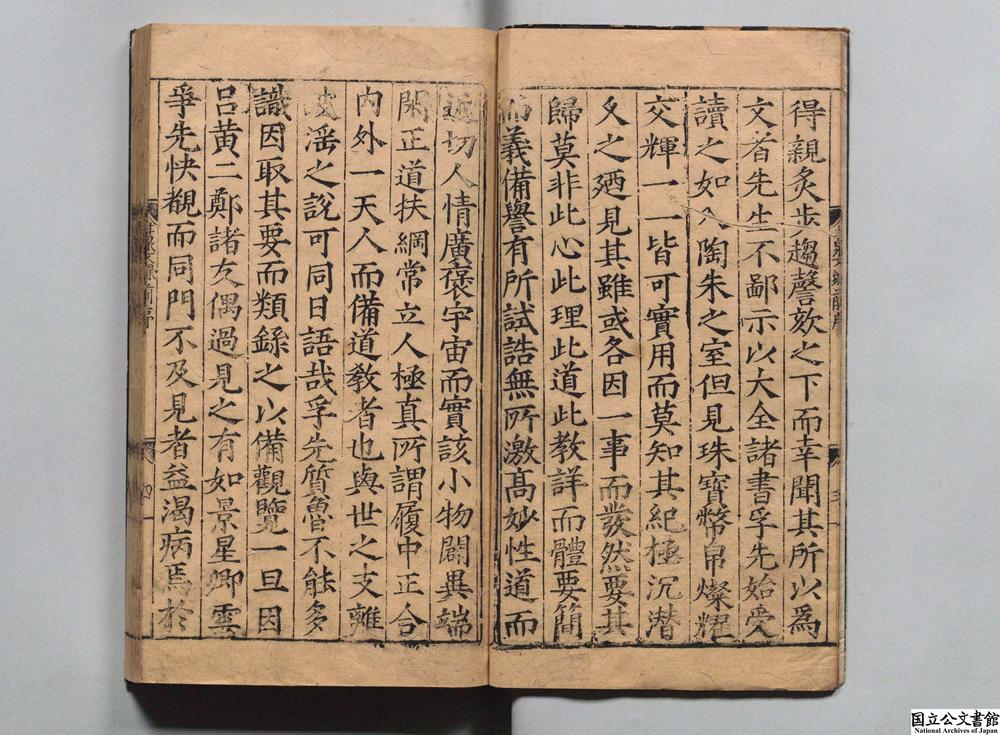 得親炙步趨謦欬之下而幸聞其所以爲
文者先生不鄙示以大全諸書孚先始受
讀之如入陶朱之室但見珠寶幣帛燦耀
交輝一一皆可實用而莫知其紀極沉潜
久之廼見其雖或各因一事而發然要其
歸莫非此心此理此道此教詳而體要簡
而義備譽有所試誥無所激髙妙性道而
近切人情廣褒宇宙而實該小物闢異端
閑正道扶綱常立人極真所謂履中正合
内外一天人而備道教者也與世之支離
淫之說可同日語哉孚先質魯不能多
識因取其要而類録之以備觀覽一旦因
吕黄二鄭諸友偶過見之有如景星卿雲
爭先快覩而同門不及見者益渴病焉於
四
国立公文書館
National Archives of Japan